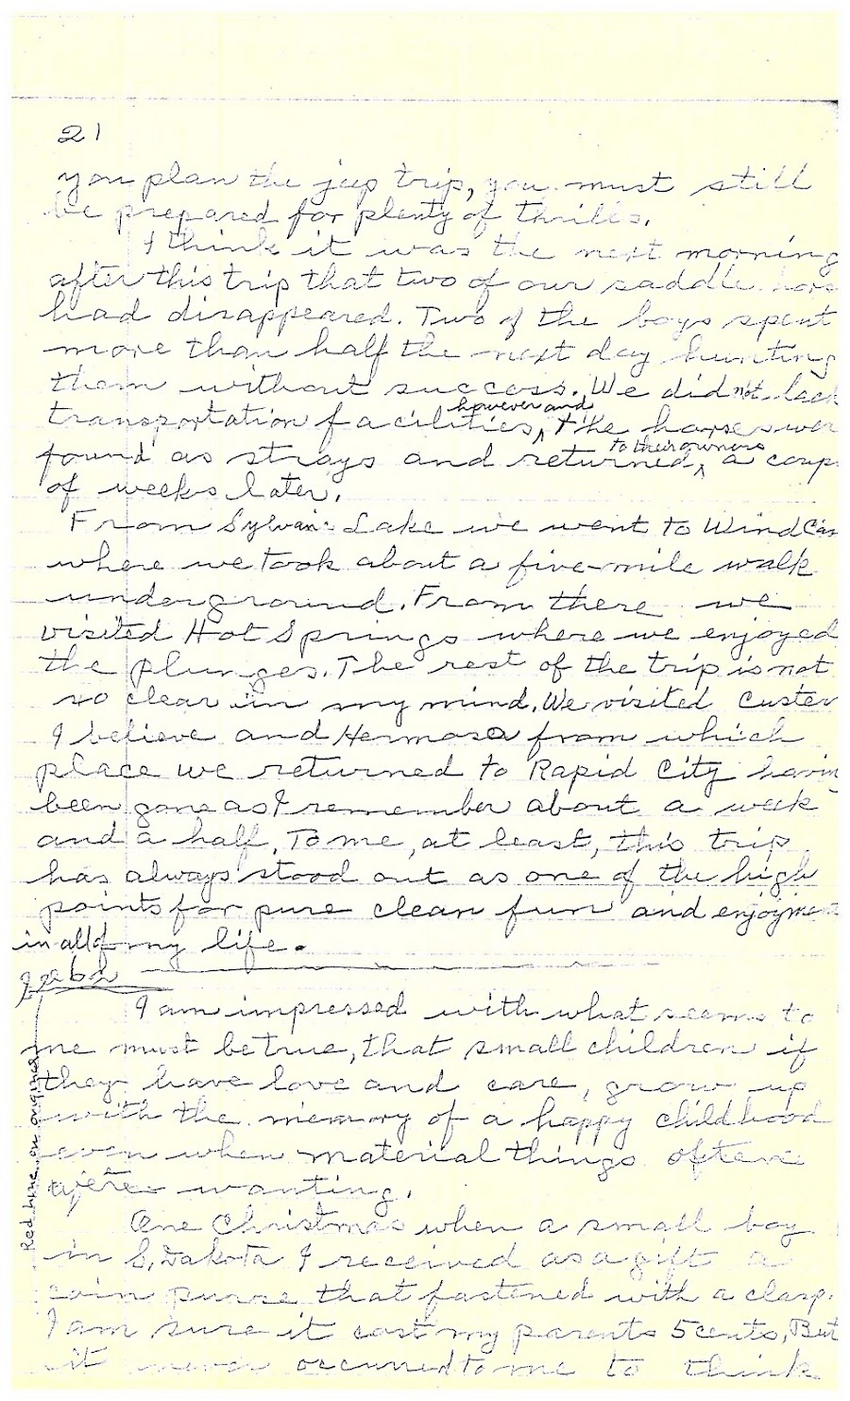 21
you plan the jeep trip, you must still
be prepared for plenty of thrills.
I think it was the next morning
after this trip that two of our saddle hors
had disappeared. Two of the boys spent
more than half the next day hunting
them without success. We did not lack
however and
transportation facilities, the horses wer
to their owners
found as strays and returned, a coup
of weeks later.
From Sylvan Lake we went to Wind Cav
where we took about a five-mile walk
underground. From there we
visited Hot Springs where we enjoyed
the plunges. The rest of the trip is not
so clear in my mind. We visited Custer
I believe and Hermosa from which
place we returned to Rapid City havin
been gone as I remember about a week
and a half. To me, at least, this trip
has always stood out as one of the high
points for pure clean fun and enjoyment
in all of my life.
I am impressed with what seems to
me must be true, that small children if
they have love and care, grow up
with the memory of a happy childhood
even when material things often
were wanting.
Red line on original
One Christmas when a small boy
in S. Dakota I received as a gift a
coin purse that fastened with a clasp.
I am sure it cost my parents 5 cents, But
it never occurred to me to think